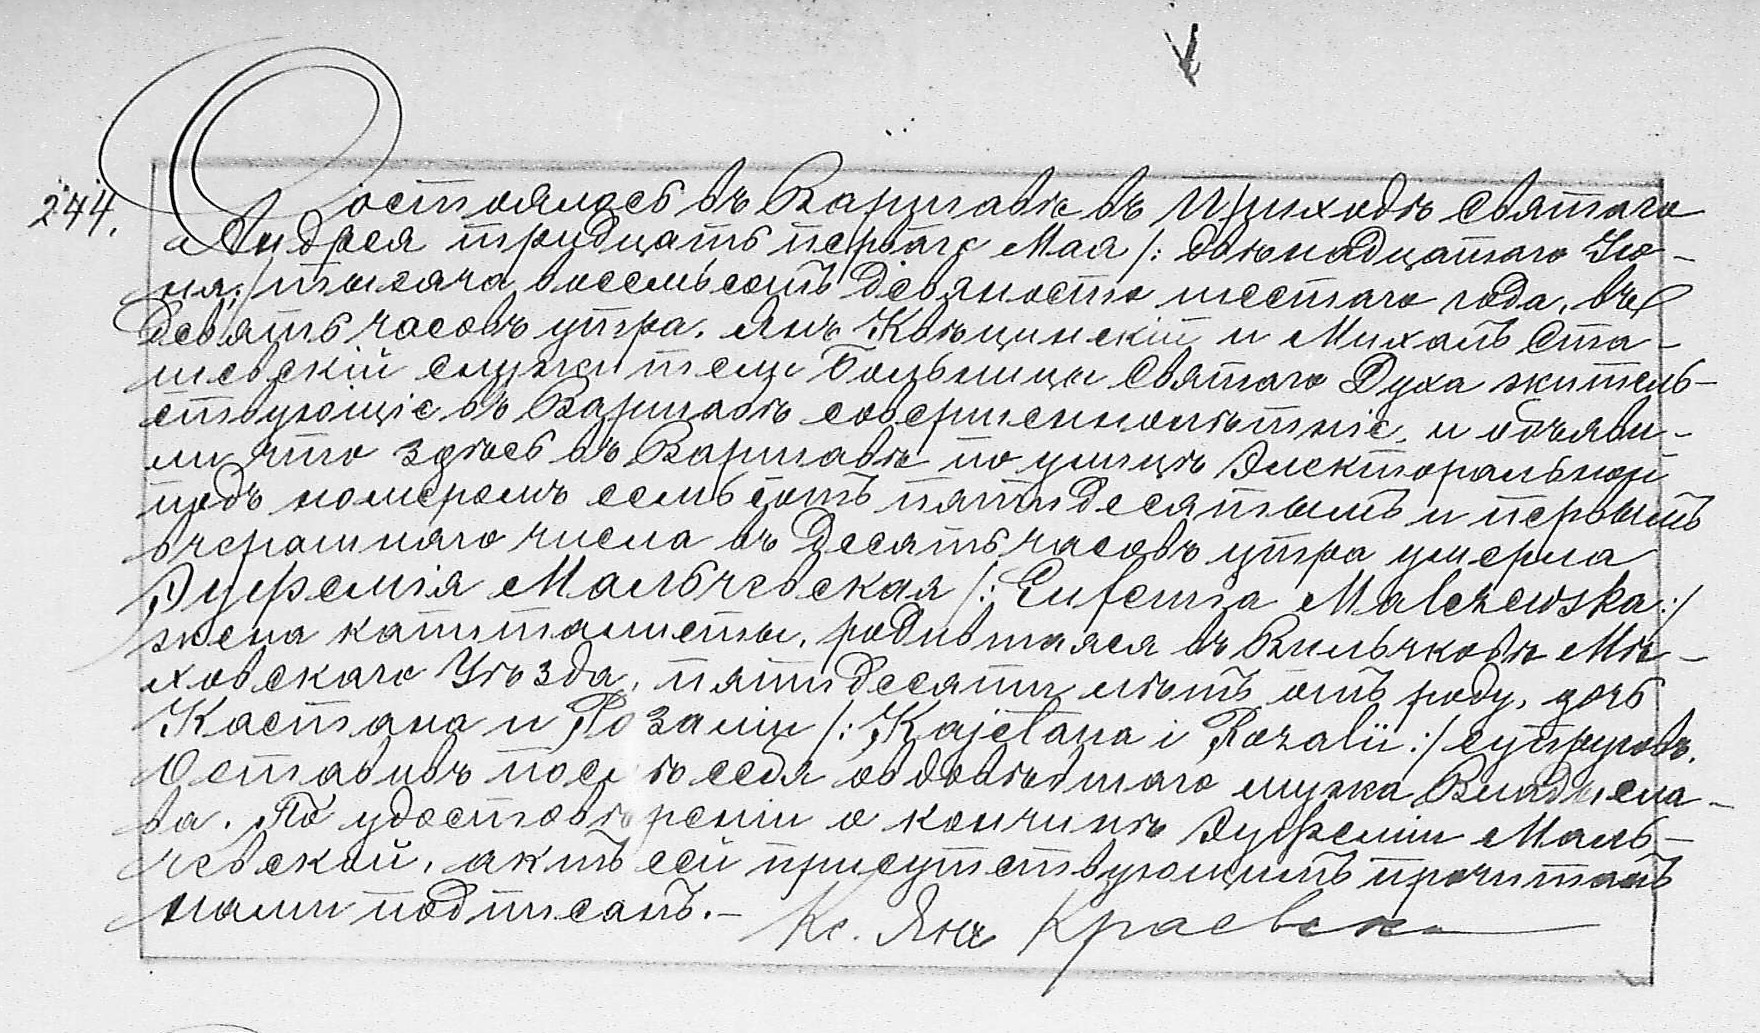 244.
Состоялось въ Варшавѣ въ Приходѣ Святаго
Андрея тридцать перваго Мая /: двѣнадцатаго Iю-
ня :/ тысяча восемьсотъ девяносто шестаго года, въ
девять часовъ утра. Янъ Квѣцинскій и Михалъ Ста-
шевскій служители Больницы Святаго Духа житель-
ствующіе въ Варшавѣ совершеннолѣтніе, и объяви-
ли что здѣсь въ Варшавѣ по улицѣ Электоральной
подъ номеромъ семьсотъ пятидесятымъ и первымъ
вчерашняго числа въ десять часовъ утра умерла
Эуфемія Мальчевская /: Eufemia Malczewska :/
жена капиталисты, родившаяся въ Вильчковѣ Мѣ-
ховскаго Уѣзда, пятидесяти лѣтъ отъ роду, дочь
Каетана и Розаліи /: Kajetana i Rozalii :/ супруговъ.
Оставивъ послѣ себя овдовѣвшаго мужа Владисла-
ва. По удостовѣреніи о кончинѣ Эуфеміи Маль-
чевской, актъ сей присутствующимъ прочитанъ
нами подписанъ.-
Кс. Янъ Краевски